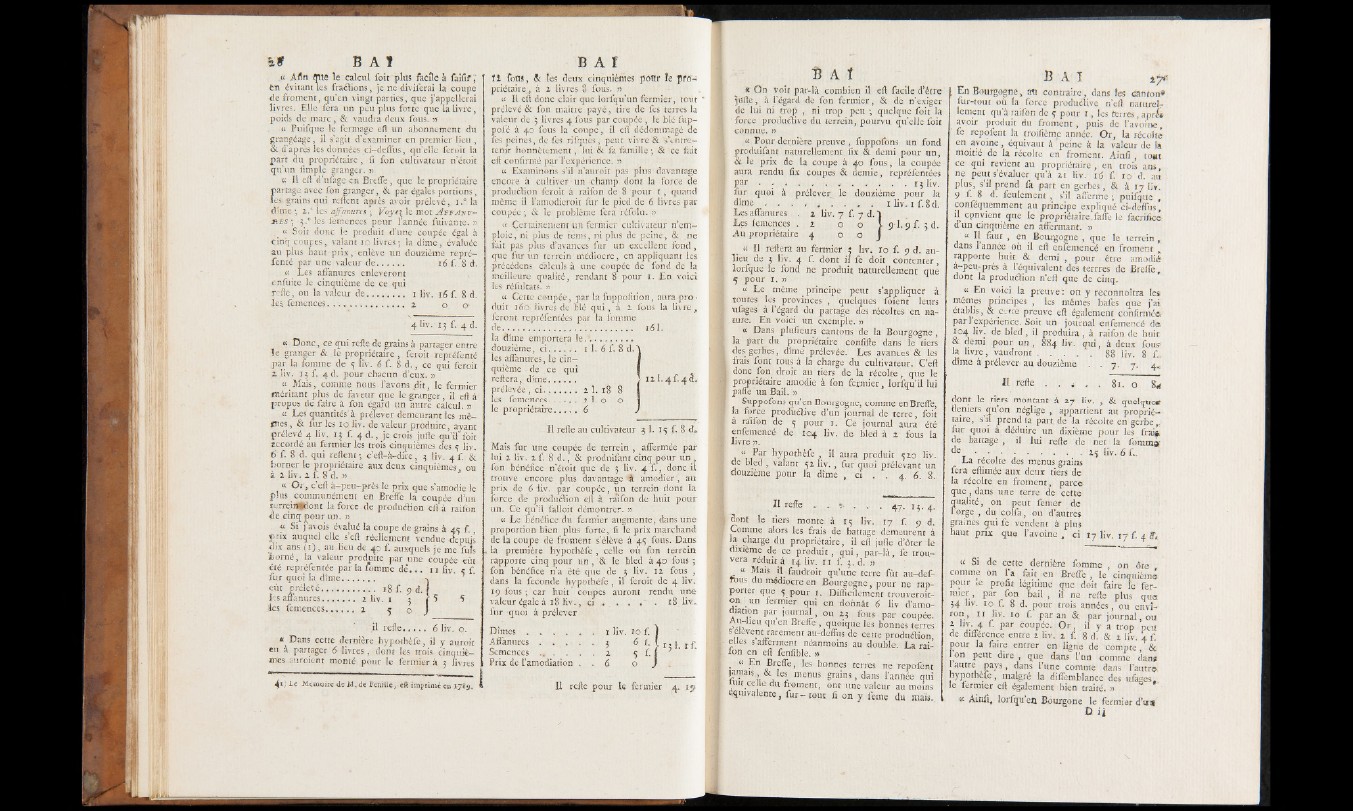 28 B A Ï
« Afin que le calcul soit plus facile à saisir,
en évitant les fractions, je ne diviserai la coupe
de froment, qu'en vingt parties, que j'appellerai
livres. Elle sera un peu plus forte que la livre,
poids de marc, & vaudra deux sous. »
« Puisque le fermage est un abonnement du
grangéage, il s'agit d'examiner en premier lieu,
& d'après les données ci-dessus, qu'elle seroit la
part du propriétaire, si son cultivateur n'étoit
qu'un simple granger. »
« Il est d'usage en Bresse, que le propriétaire
partage avec son granger, & par égales portions,
les grains qui restent après avoir prélevé, 1.° la
dîme; 2.° les affanures; Voyez le mot AFFANU-
RES; 3.° les semences pour l'année suivante. »
« Soit donc le produit d'une coupée égal à
cinq coupes, valant 10 livres; la dîme, évaluée
au plus haut prix, enlève un douzième repré-
senté par une valeur de...... 16 s. 8 d.
« Les affanures enleveront
ensuite le cinquième de ce qui
reste, ou la valeur de........ 1 liv. 16 s. 8 d.
les semences................ 2 0 0
4 liv. 13 s. 4 d.
« Donc, ce qui reste de grains à partager entre
le granger & le propriétaire, seroit représenté
par la somme de 5 liv. 6 s. 8 d., ce qui feroit
2 liv. 13 s. 4 d. pour chacun d'eux. »
« Mais, comme nous l'avons dit, le fermier
méritant plus de faveur que le granger, il est à
propos de faire à son égard un autre calcul. »
« Les quantités à prélever demeurant les mê-
mes, & sur les 10 liv. de valeur produite, ayant
prélevé 4 liv. 13 s. 4 d., je crois juste qu'il soit
accordé au fermier les trois cinquièmes des 5 liv.
6 s. 8 d. qui restent; c'est-à-dire, 3 liv. 4 s. &
borner le propriétaire aux deux cinquièmes, ou
à 2 liv. 2 s. 8 d. »
« Or, c'est à-peu-près le prix que s'amodie le
plus communément en Bresse la coupée d'un
terrein dont la force de production est à raison
de cinq pour un. »
« Si j'avois évalué la coupe de grains à 45 s.,
prix auquel elle s'est réellement vendue depuis
dix ans (1), au lieu de 40 s. auxquels je me suis
borné, la valeur produite par une coupée eût
été représentée par la somme de... 11 liv. 5 s.
sur quoi la dîme.......
eût prélevé........... 18 s. 9 d.
les affanures....... 2 liv. 1 3 5 5
les semences...... 2 5 0
il reste..... 6 liv. 0.
« Dans cette dernière hypothèse, il y auroit
eu à partager 6 livres, dont les trois cinquiè-
mes auroient monté pour le fermier à 3 livres
(1) Le Mémoire de M. de Fenille, est imprimé en 1789.
B A Ï
12 sous, & les deux cinquièmes pour le pro-
priétaire, à 2 livres 8 sous. »
« Il est donc clair que lorsqu'un fermier, tout
prélevé & son maître payé, tire de ses terres la
valeur de 3 livres 4 sous par coupée, le blé sup-
posé à 40 sous la coupe, il est dédommagé de
ses peines, de ses risques, peut vivre & s'entre-
tenir honnêtement, lui & sa famille; & ce fait
est confirmé par l'expérience. »
« Examinons s'il n'auroit pas plus davantage
encore à cultiver un champ dont la force de
production seroit à raison de 8 pour 1, quand
même il l'amodieroit sur le pied de 6 livres par
coupée; & le problème sera résolu. »
« Certainement un fermier cultivateur n'em-
ploie, ni plus de tems, ni plus de peine, & ne
fait pas plus d'avances sur un excellent fond,
que sur un terrein médiocre, en appliquant les
précédens calculs à une coupée de fond de la
meilleure qualité, rendant 8 pour 1. En voici
les résultats. »
« Cette coupée, par la supposition, aura pro-
duit 160 livres de blé qui, à 2 sous la livre,
seront représentées par la somme
de.......................... 16 l.
la dîme emportera le..........
douzième, ci...... 1 l. 6 s. 8 d.
les affanures, le cin-
quième de ce qui
restera, dîme...... 12 l. 4 s. 4 d.
prélevée, ci....... 2 l. 18 8
les semences...... 2 l. 0 0
le propriétaire..... 6
Il reste au cultivateur 3 l. 15 s. 8 d.
Mais sur une coupée de terrein, affermée par
lui 2 liv. 2 s. 8 d., & produisant cinq pour un,
son bénéfice n'étoit que de 3 liv. 4 s., donc il
trouve encore plus davantage à amodier, au
prix de 6 liv. par coupée, un terrein dont la
force de production est à raison de huit pour
un. Ce qu'il falloit démontrer. »
« Le bénéfice du fermier augmente, dans une
proportion bien plus forte, si le prix marchand
de la coupe de froment s'élève à 45 sous. Dans
la première hypothèse, celle où son terrein
rapporte cinq pour un, & le bled à 40 sous;
son bénéfice n'a été que de 3 liv. 12 sous,
dans la seconde hypothèse, il seroit de 4 liv.
19 sous; car huit coupes auront rendu une
valeur égale à 18 liv., ci . . . . . 18 liv.
sur quoi à prélever
Dîmes . . . . . . 1 liv. 10 s.
Affanures . . . . . 3 6 s.
Semences . . . . . 2 5 s. 13 l. 1 s.
Prix de l'amodiation . . 6 0
Il reste pour le fermier 4. 19
B A Ï
« On voit par-là combien il est facile d'être
juste, à l'égard de son fermier, & de n'exiger
de lui ni trop, ni trop peu; quelque soit la
force productive du terrein, pourvu qu'elle soit
connue. »
« Pour dernière preuve, supposons un fond
produisant naturellement six & demi pour un,
& le prix de la coupe à 40 sous, la coupée
aura rendu six coupes & demie, représentées
par . . . . . . . . . . . . 13 liv.
sur quoi à prélever le douzième pour la
dîme . . . . . . . . . 1 liv. 1 s. 8 d.
Les affanures . . 2 liv. 7 s. 7 d.
Les semences . 2 0 0 9 l. 9 s. 3 d.
Au propriétaire 4 0 0
« Il restera au fermier 3 liv. 10 s. 9 d. au-
lieu de 3 liv. 4 s. dont il se doit contenter,
lorsque le fond ne produit naturellement que
5 pour 1. »
« Le même principe peut s'appliquer à
toutes les provinces, quelques soient leurs
usages à l'égard du partage des récoltes en na-
ture. En voici un exemple. »
« Dans plusieurs cantons de la Bourgogne,
la part du propriétaire consiste dans le tiers
des gerbes, dîme prélevée. Les avances & les
frais sont tous à la charge du cultivateur. C'est
donc son droit au tiers de la récolte, que le
propriétaire amodie à son fermier, lorsqu'il lui
passe un Bail. »
Supposons qu'en Bourgogne, comme en Bresse,
la force productive d'un journal de terre, soit
à raison de 5 pour 1. Ce journal aura été
ensemencé de 104 liv. de bled à 2 sous la
livre ».
« Par hypothèse, il aura produit 520 liv.
de bled, valant 52 liv., sur quoi prélevant un
douzième pour la dîme, ci . . 4. 6. 8.
Il reste . . . . . . 47. 13. 4.
dont le tiers monte à 15 liv. 17 s. 9 d.
Comme alors les frais de battage demeurent à
la charge du propriétaire, il est juste d'ôter le
dixième de ce produit, qui, par-là, se trou-
vera réduit à 14 liv. 11 s. 3. d. »
« Mais il faudroit qu'une terre fût au-des-
sous du médiocre en Bourgogne, pour ne rap-
porter que 5 pour 1. Difficilement trouveroit-
on un fermier qui en donnât 6 liv d'amo-
diation par journal, ou 23 sous par coupée.
Au-lieu qu'en Bresse, quoique les bonnes terres
s'élèvent rarement au-dessus de cette production,
elles s'afferment néanmoins au double. La rai-
son en est sensible. »
« En Bresse, les bonnes terres ne reposent
jamais, & les menus grains, dans l'année qui
suit celle du froment, ont une valeur au moins
équivalente, sur-tout si on y sème du maïs.
B A Ï 27
En Bourgogne, au contraire, dans les cantons
sur-tout où la force productive n'est naturel-
lement qu'à raison de 5 pour 1, les terres, après
avoir produit du froment, puis de l'avoine,
se reposent la troisième année. Or, la récolte
en avoine, équivaut à peine à la valeur de la
moitié de la récolte en froment. Ainsi, tout
ce qui revient au propriétaire, en trois ans,
ne peut s'évaluer qu'à 21 liv. 16 s. 10 d. au
plus, s'il prend sa part en gerbes, & à 17 liv.
9 s. 8 d. seulement, s'il afferme; puisque,
conséquemment au principe expliqué ci-dessus,
il convient que le propriétaire fasse le sacrifice
d'un cinquième en affermant. »
« Il faut, en Bourgogne, que le terrein,
dans l'année où il est ensemencé en froment,
rapporte huit & demi, pour être amodié
à-peu-près à l'équivalent des terres de Bresse,
dont la production n'est que de cinq.
« En voici la preuve: on y reconnoîtra les
mêmes principes, les mêmes bases que j'ai
établis, & cette preuve est également confirmée
par l'expérience. Soit un journal ensemencé de
104 liv. de bled, il produira, à raison de huit
& demi pour un, 884 liv. qui, à deux sous
la livre, vaudront . . . . 88 liv. 8 s.
dîme à prélever au douzième . . 7. 7. 4.
Il reste . . . . . 81. 0 8.
dont le tiers montant à 27 liv., & quelques
deniers qu'on néglige, appartient au proprié-
taire, s'il prend sa part de la récolte en gerbe,
sur quoi à déduire un dixième pour les frais
de battage, il lui reste de net la somme
de . . . . . . . . . 25 liv. 6 s.
La récolte des menus grains
sera estimée aux deux tiers de
la récolte en froment, parce
que, dans une terre de cette
qualité, on peut semer de
l'orge, du colsa, ou d'autres
graines qui se vendent à plus
haut prix que l'avoine, ci 17 liv. 17 s. 4 d.
« Si de cette dernière somme, on ôte,
comme on l'a fait en Bresse, le cinquième
pour le profit légitime que doit faire le fer-
mier, par son bail, il ne reste plus que
34 liv. 10 s. 8 d. pour trois années, ou envi-
ron, 11 liv. 10 s. par an & par journal, ou
2 liv. 4 s. par coupée. Or, il y a trop peu
de différence entre 2 liv. 2 s. 8 d. & 2 liv. 4 s.
pour la faire entrer en ligne de compte, &
l'on peut dire, que dans l'un comme dans
l'autre pays, dans l'une comme dans l'autre
hypothèse, malgré la dissemblance des usages,
le fermier est également bien traité. »
« Ainsi, lorsqu'en Bourgone le fermier d'un
D ij